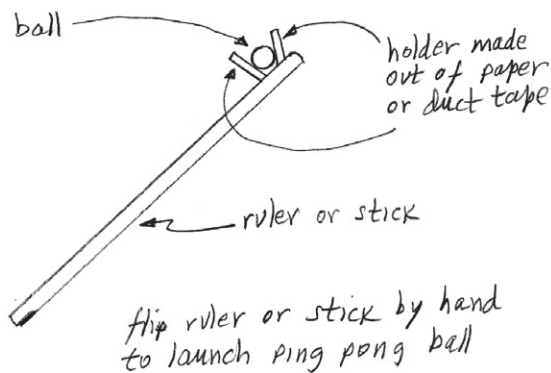 ball
holder made
out of paper
or duct tape
ruler or stick
flip ruler or stick by hand
to launch ping pong ball